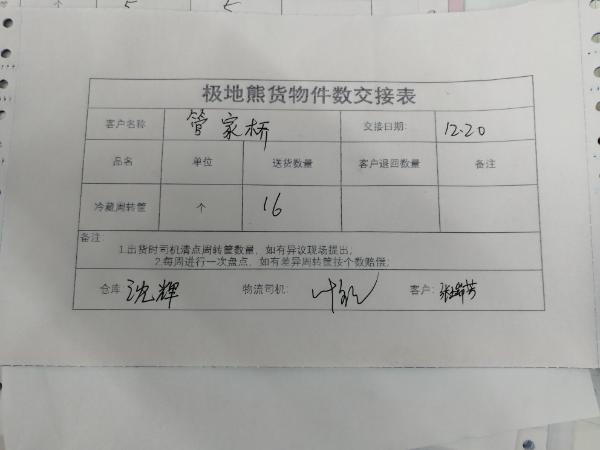 个 5 5
极地熊货物件数交接表
客户名称 管家桥 交接日期: 12.20
品名 单位 送货数量 客户退回数量 备注
冷藏周转筐 个 16
备注:
1.出货时司机清点周转筐数量，如有异议现场提出;
2.每周进行一次盘点，如有差异周转筐按个数赔偿;
仓库: 沈辉 物流司机: 叶 客户: 张